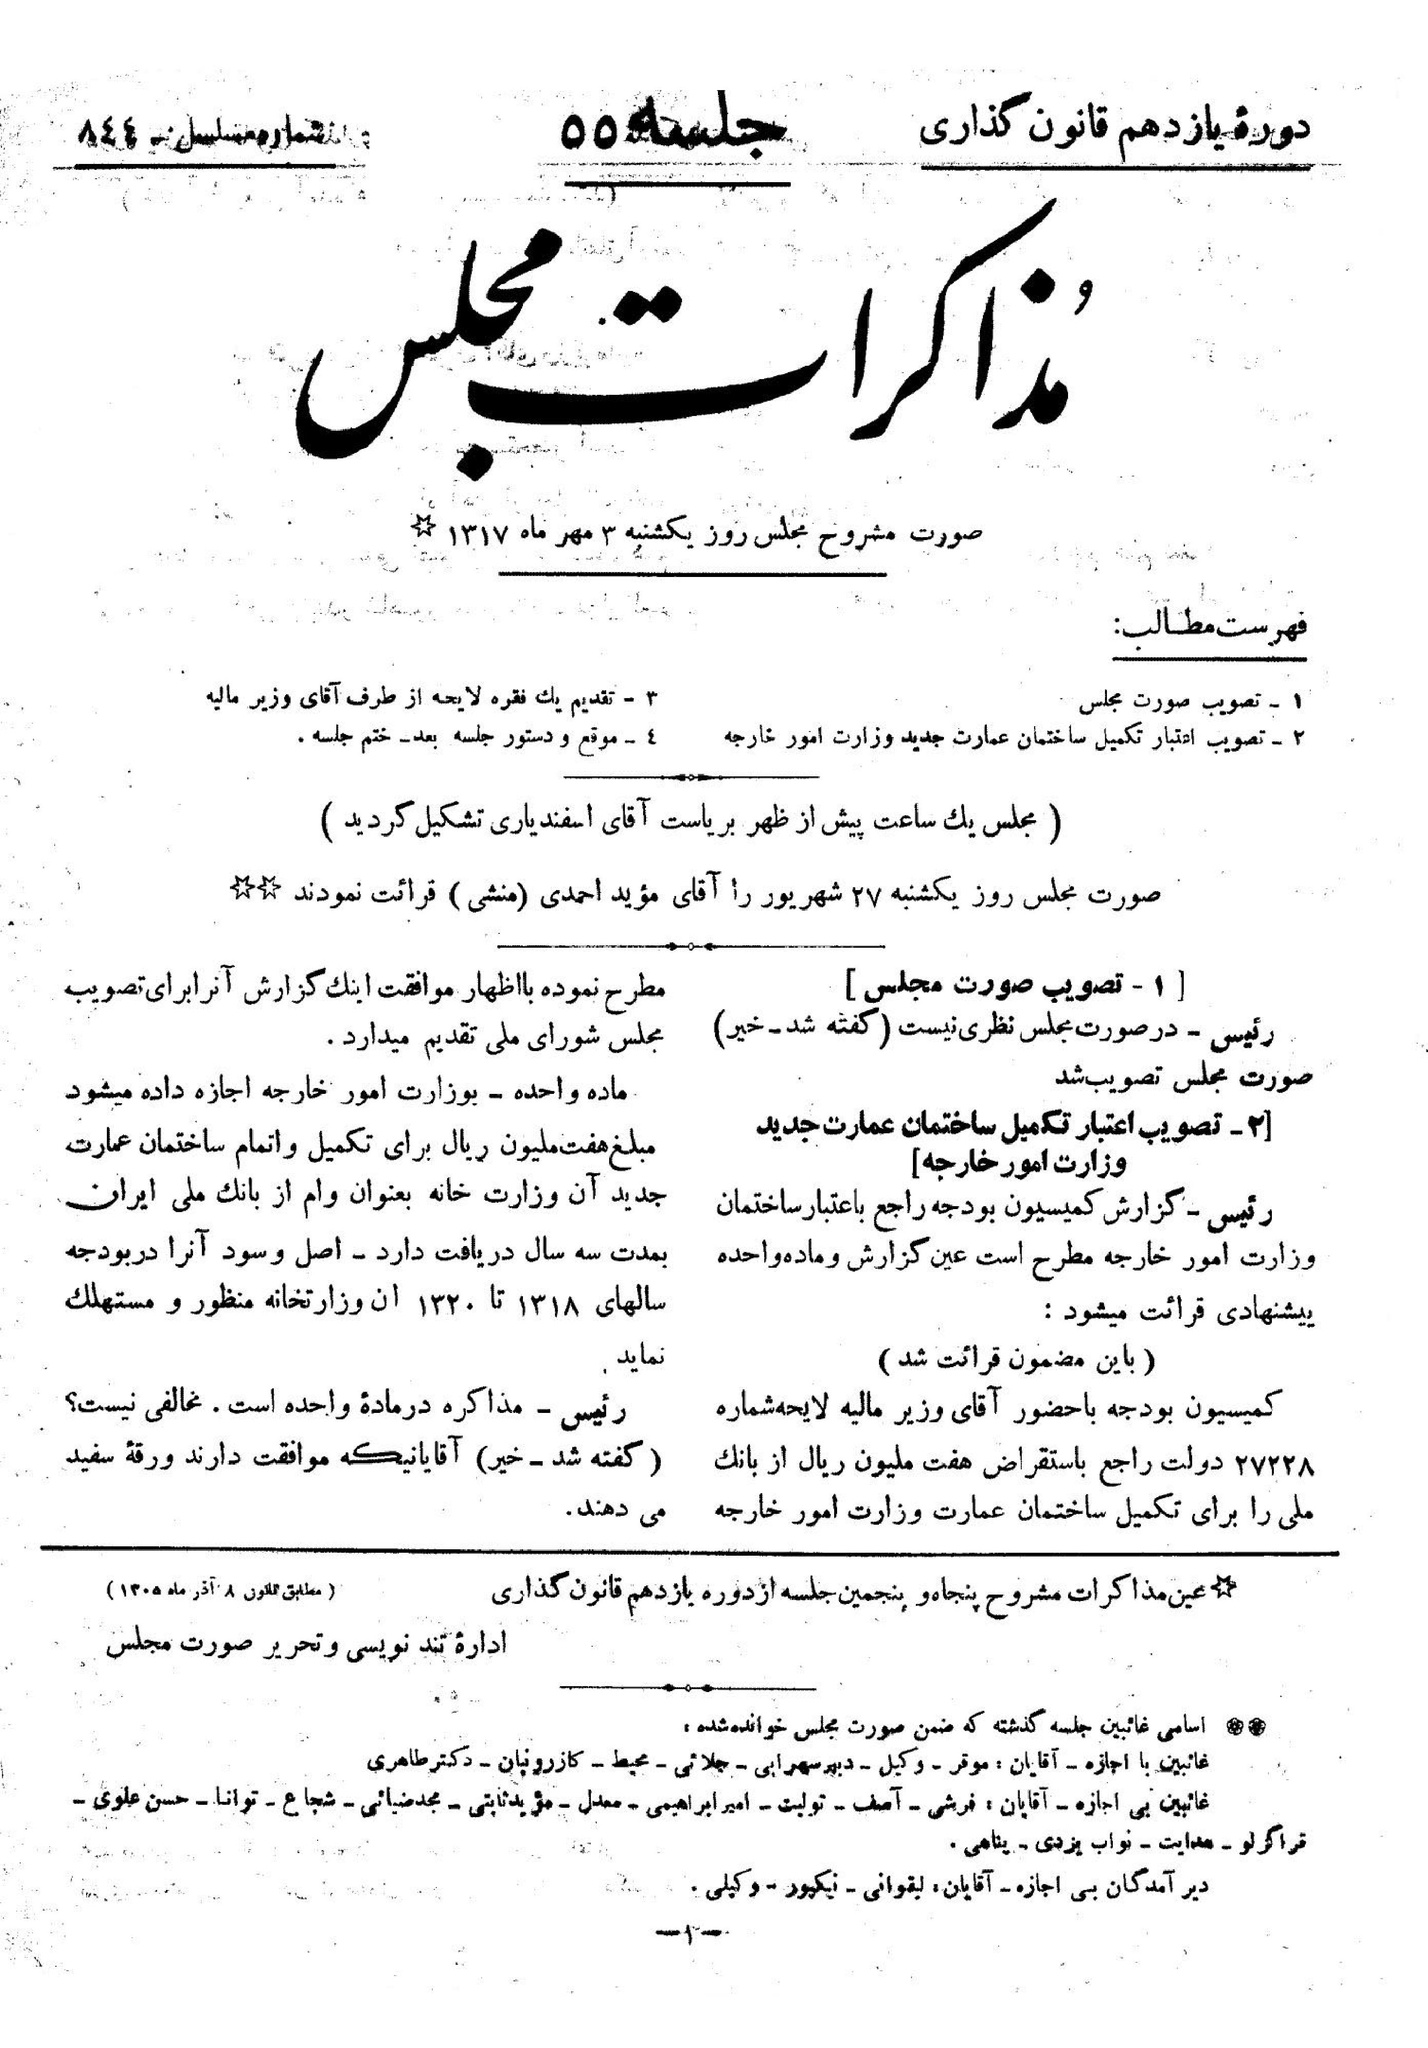 دورهٔ یازدهم قانون گذاری
جلسه ۵۵
شماره مسلسل - ۸٤٤
مُذاکرات مجلس
صورت مشروح مجلس روز یکشنبه ۳ مهر ماه ۱۳۱۷ ☆
فهرست مطالب:
۱ - تصویب صورت مجلس
۲ - تصویب اعتبار تکمیل ساختمان عمارت جدید وزارت امور خارجه
۳ - تقدیم یك فقره لایحه از طرف آقای وزیر مالیه
٤ - موقع و دستور جلسه بعد - ختم جلسه .
( مجلس یك ساعت پیش از ظهر بریاست آقای اسفندیاری تشکیل گردید )
صورت مجلس روز یکشنبه ۲۷ شهریور را آقای مؤید احمدی (منشی) قرائت نمودند ☆☆
[ ۱ - تصویب صورت مجلس ]
رئیس - در صورت مجلس نظری نیست (گفته شد - خیر)
صورت مجلس تصویب شد
[۲ - تصویب اعتبار تکمیل ساختمان عمارت جدید
وزارت امور خارجه]
رئیس - گزارش کمیسیون بودجه راجع باعتبار ساختمان
وزارت امور خارجه مطرح است عین گزارش و ماده واحده
پیشنهادی قرائت میشود :
( باین مضمون قرائت شد )
کمیسیون بودجه باحضور آقای وزیر مالیه لایحه شماره
۲۷۲۲۸ دولت راجع باستقراض هفت ملیون ریال از بانك
ملی را برای تکمیل ساختمان عمارت وزارت امور خارجه
مطرح نموده بااظهار موافقت اینك گزارش آنرا برای تصویب
مجلس شورای ملی تقدیم میدارد .
ماده واحده - بوزارت امور خارجه اجازه داده میشود
مبلغ هفت ملیون ریال برای تکمیل و اتمام ساختمان عمارت
جدید آن وزارت خانه بعنوان وام از بانك ملی ایران
بمدت سه سال دریافت دارد - اصل و سود آنرا در بودجه
سالهای ۱۳۱۸ تا ۱۳۲۰ ان وزارتخانه منظور و مستهلك
نماید
رئیس - مذاکره در مادهٔ واحده است . مخالفی نیست؟
( گفته شد - خیر) آقایانیکه موافقت دارند ورقهٔ سفید
می دهند.
☆ عین مذاکرات مشروح پنجاه و پنجمین جلسه از دوره یازدهم قانون گذاری
( مطابق قانون ۸ آذر ماه ۱۳۰۵ )
ادارهٔ تند نویسی و تحریر صورت مجلس
❁❁ اسامی غائبین جلسه گذشته که ضمن صورت مجلس خوانده شده :
غائبین با اجازه - آقایان : موقر - وکیل - دبیر سهرابی - جلائی - محیط - کازرونیان - دکتر طاهری
غائبین بی اجازه - آقایان : فرشی - آصف - تولیت - امیر ابراهیمی - معدل - مؤید ثابتی - مجد ضیائی - شجاع - توانا - حسن علوی -
قراگزلو - هدایت - نواب یزدی - پناهی .
دیر آمدگان بی اجازه - آقایان : لیقوانی - نیکپور - وکیلی .
-۱-